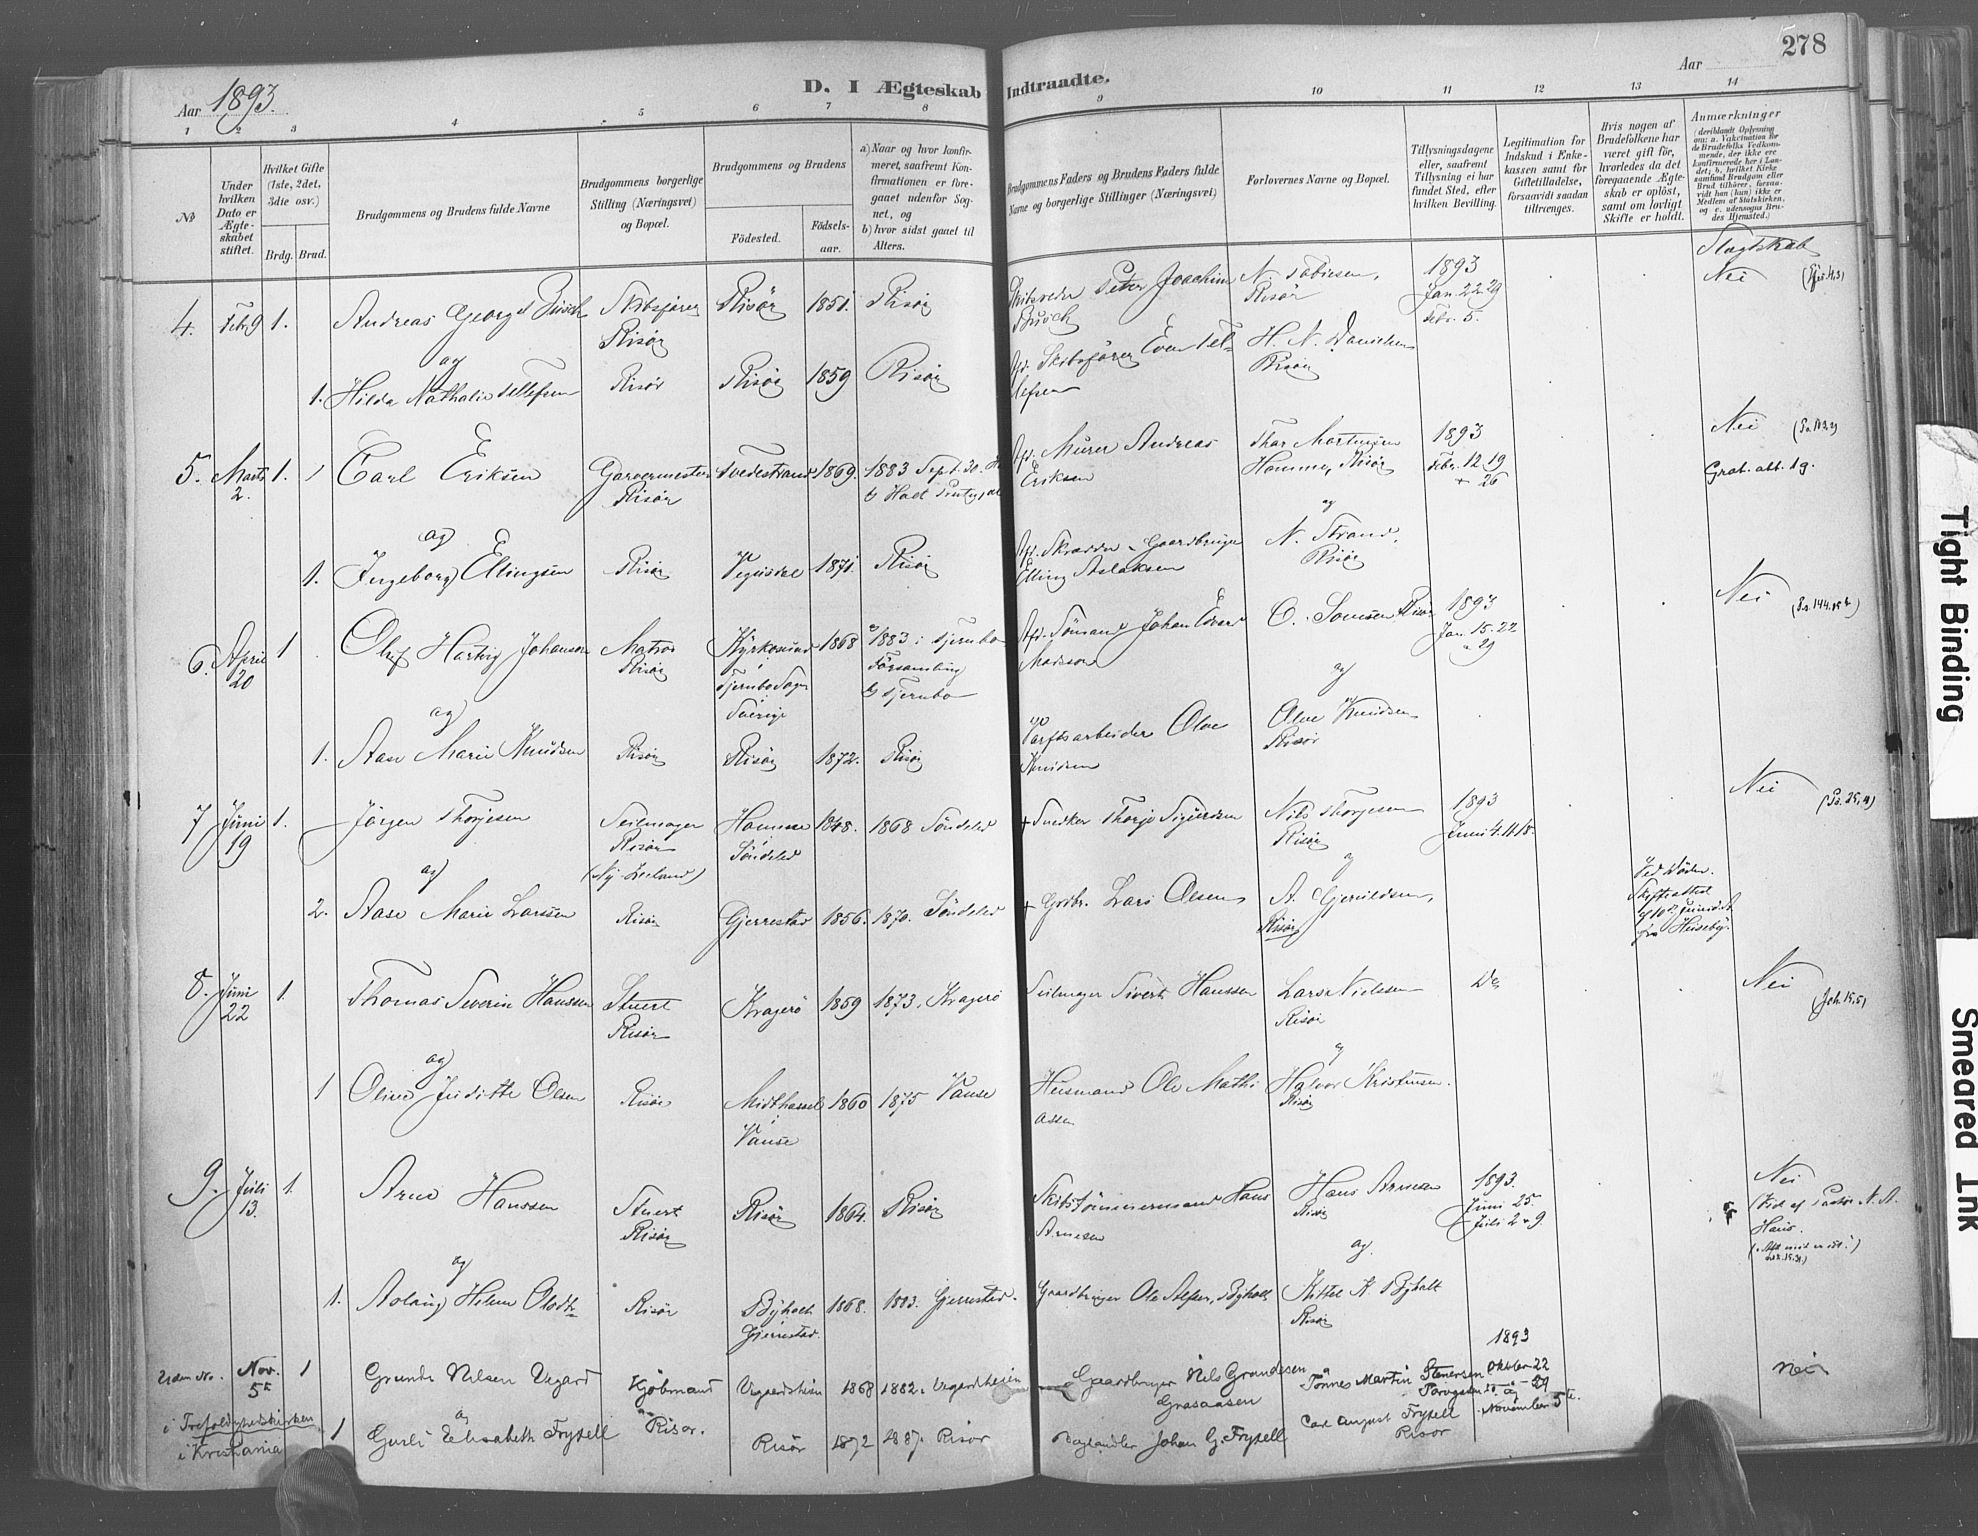 278
Aar 1893.
D. I Ægteskab Indtraadte.
Aar
1 2 3 4 5 6 7 8 9 10 11 12 13 14
No
Under hvilken Dato er Ægteskabet stiftet.
Hvilket Gifte (1ste, 2det, 3die osv.)
Brdg. Brud.
Brudgommens og Brudens fulde Navne
Brudgommens borgerlige Stilling (Næringsvei) og Bopæl.
Brudgommens og Brudens
Födested.
Födselsaar.
a) Naar og hvor konfirmeret, saafremt Konfirmationen er foregaaet udenfor Sognet, og
b) hvor sidst gaaet til Alters.
Brudgommens Faders og Brudens Faders fulde Navne og borgerlige Stillinger (Næringsvei)
Forlovernes Navne og Bopæl.
Tillysningsdagene eller, saafremt Tillysning ei har fundet Sted, efter hvilken Bevilling.
Legitimation for Indskud i Enkekassen samt for Giftetilladelse, forsaavidt saadan tiltrænges.
Hvis nogen af Brudefolkene har været gift för, hvorledes da det foregaaende Ægteskab er oplöst, samt om lovligt Skifte er holdt.
Anmærkninger
(deriblandt Oplysning om: a. Vakcination for de Brudefolks Vedkommende, der ikke ere konfirmerede her i Landet; b. hvilket Kirkesamfund Brudgom eller Brud tilhörer, forsaavidt han (hun) ikke er Medlem af Statskirken, og c. udensogns Brudes Hjemsted.)
Slagtskab
4. Febr 9 1. Andreas Georg Busch Skibsförer Risör Risör 1851. Risör
Skibsreder Peter Joachim Busch N. Tobiesen, Risör 1893 Jan. 22. 29 Febr. 5. Nei
og
1. Hilda Nathalie Tellefsen Risör Risör 1859 Risör
Skibsförer Even Tellefsen H. N. Danielsen Risör
5. Marts 2. 1. Carl Eriksen Garvermester Risör Tvedestrand 1869. 1883 Sept. 30. Holt
Murer Andreas Eriksen Thor Mortensen Hammer, Risör 1893 Febr. 12 19 + 26 Nei
Grat. att. 19.
og
1. Ingeborg Ellingsen Risör Vegusdal 1871. Risör
Afd. Skrædder & Gaardbruger Elling Aslaksen og N. Strand, Risör
6. April 20 1 Oluf Hartvig Johansen Matros Risör Kyrkosund i Tjernbo Sogn Sverige 1868 1883 i Tjernbo Församling b) Tjernbo
Afd. Sömand Johan Edvard Madsson O. Somsen Risör 1893 Jan. 15. 22 & 29 Nei
og
1. Aase Marie Knudsen Risör Risör 1872. Risör
Værftsarbeider Olve Knudsen og Olve Knudsen Risör
7 Juni 19 1. Jörgen Thorjesen Seilmager Risör (Ny Zeeland) Hamme Söndeled 1848. 1868 Söndeled
+ Snedker Thorje Sigurdsen Nils Thorjesen Risör 1893 Juni 4. 11 18. Nei
og
2. Aase Marie Larssen Risör Gjerrestad 1856. 1870. Söndeled
+ Gbr. Lars Olsen og A. Gjeruldsen, Risör Ved Döden. Skifteattest fra Huseby.
8. Juni 22 1. Thomas Severin Hanssen Stuert Risör Kragerö 1859 1873. Kragerö
Seilmager Sivert Hanssen Lars Nielsen Risör Do Nei (Joh. 15,5)
og
1 Oline Juditte Olsen Risör Midthassel i Vanse 1860 1875 Vanse
Husmand Ole Mathiassen og Halvor Kristensen. Risör
9. Juli 13. 1. Arne Hanssen Stuert Risör Risör 1864. Risör
Skibstömmermand Hans Arnesen Hans Arnesen Risör 1893. Juni 25. Juli 2 & 9. Nei
Viet af Pastor N. A. Hans.
og
1. Aslaug Helene Olsdtr Risör Byholt Gjerrestad. 1868. 1883. Gjerrestad.
Gaardbruger Ole Alfsen, Byholt og Kittel K. Byholt Risör
Uden No. Nov. 5te 1 Grunde Nilsen Vegard Kjöbmand Risör. Vegardsheien 1868 1882. Vegardsheien
Gaardbruger Nils Grundesen Grasaasen Tönnes Martin Stenersen 1893 Oktober 22 og 29 November 5te. Nei
i Trefoldighedskirken i Kristiania og 1 Gusli Elisabeth Frysell Risör 1872 1887. Risör
Johan G. Frysell Carl August Frysell Risör
Tight Binding
Smeared Ink